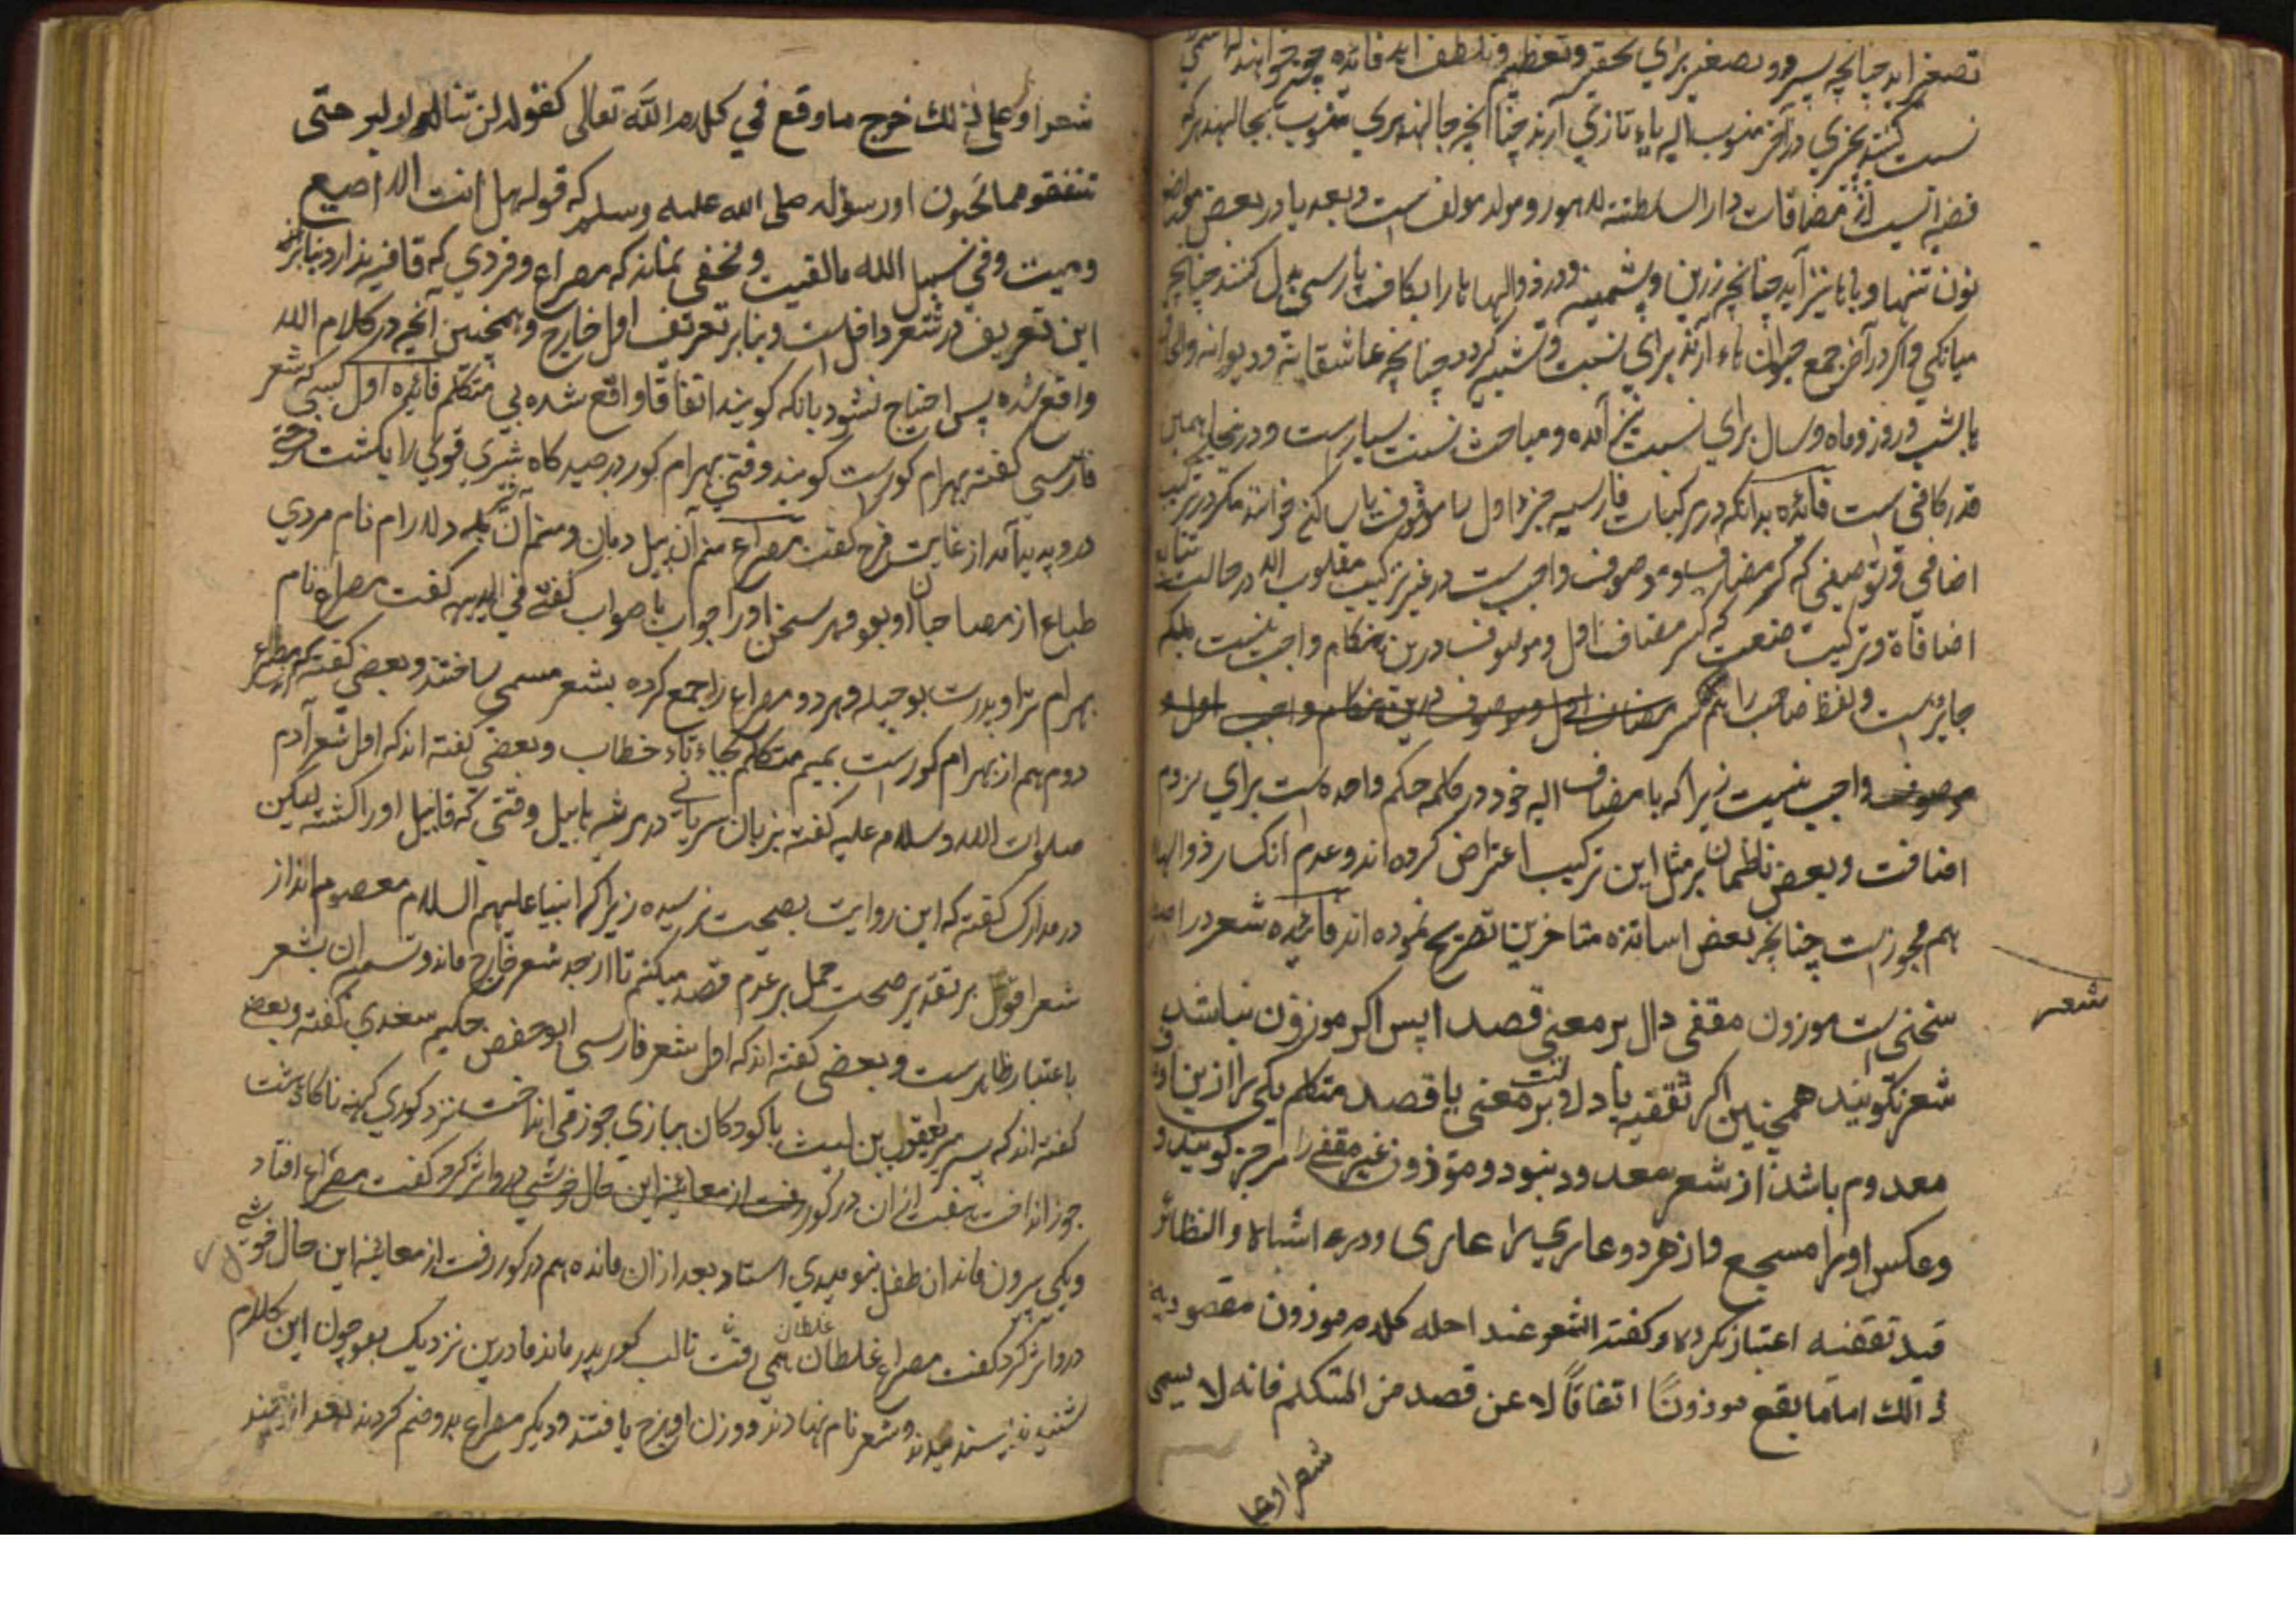 تصغیر آید چنانچه پسرو و تصغیر برای تحقیر و تعظیم و تلطف آید فائده چون خواهند که اسمی
نسبت کنند بچیزی در آخر منسوب الیه یاء تازی آرند چنانچه جالهندری منسوب بجالهندر که
قصبه ایست از مضافات دار السلطنته لاهور و مولد مولف است و بعد یا در بعض مواضع
نون تنها و با یا نیز آید چنانچه زرین و پشمینه و در ذو الهاء ها را بکاف پارسی بدل کنند چنانچه
میانکی و اکر در آخر جمع حیوان هاء آرند برای نسبت و تشبیه کردد چنانچه عاشقانه و دیوانه و الحاق
با شب و روز و ماه و سال برای نسبت نیز آمده و مباحث نسبت بسیار است و در اینجا همین
قدر کافی است فائده بدانکه در مرکبات فارسیه جزء اول را موقوف یا ساکن خوانند مکر در ترکیب
اضافی و توصیفی که کسر مضاف و موصوف واجب است در غیر ترکیب مقلوب الا در حالت تتابع
اضافاة و ترکیب صنعت که کسر مضاف اول و موصوف درین هنکام واجب نیست بلکه
جایز است و لفظ صاحب را هم کسر مضاف اول و موصوف درین هنکام واجب اول و
موصوف واجب نیست زیرا که با مضاف الیه خود در کلمه حکم واحده است برای لزوم
اضافت و بعض ناظمان بر مثل این ترکیب اعتراض کرده اند و عدم انکسار ذو الهاء
هم مجوز است چنانچه بعض اساتذه متاخرین تصریح نموده اند فائده شعر در اصل
شعر
سخنی است موزون مقفی دال بر معنی قصدا پس اکر موزون نباشد
شعر نکویند همچنین اکر تقفیه یا دلالت بر معنی یا قصد متکلم یکی را ازین
معدوم باشد از شعر معدود نبود و موذون غیر مقفی را مرجز کویند و
وعکس او را مسجع و از هردو عاری را عاری و در اشباه و النظائر
قید تقفیه اعتبار نکرده و کفته الشعر عند اهله کلام موزون مقصود به
ذالك اما ما یقع موزونًا اتفاقًا لا عن قصد من المتکلم فانه لا یسمی
شعرا و علی
شعرا و علی ذلك خرج ما وقع في کلام الله تعالی کقوله لن تنالوا البر حتی
تنفقوا مما تحبون او رسوله صلی الله علیه وسلم که قوله هل انت الا اصبع
دمیت وفي سبیل الله ما لقیت و مخفی نماند که مصراع و فردی که قافیه ندارد بنابر
این تعریف در شعر داخل است و بنا بر تعریف اول خارج و همچنین آنچه در کلام الله
واقع شده پس احتیاج نشود بانکه کویند اتفاقا واقع شده بی متکلم فائده اول کسی که شعر
فارسی کفته بهرام کور است کویند وقتی بهرام کور در صید کاه شیری قوی را بکشت
درو پدید آمد از غایت فرح کفت مصراع منم آن پیل دمان و منم آن شیر یله دلارام نام مردی
طباع از مصاحبان او بود و هر سخن او را جواب باصواب کفتی في البدیهه کفت مصراع نام
بهرام ترا و پدرت بوجبله و هر دو مصراع را جمع کرده بشعر مسمی ساختند و بعضی کفته که مصراع
دوم هم از بهرام کور است بمیم متکلم بجاء تاء خطاب و بعضی کفته اند که اول شعر آدم
صلوات الله وسلامه علیه کفته بزبان سریانی در مرثیه هابیل وقتی که قابیل او را کشته لیکن
در مدارک کفته که این روایت بصحت نرسیده زیرا که انبیا علیهم السلام معصوم اند از
شعر اقول بر تقدیر صحت حمل بر عدم قصد میکنم تا از حد شعر خارج ماند و تسمیه ان بشعر
باعتبار ظاهر است و بعضی کفته اند که اول شعر فارسی ابو حفص حکیم سغدی کفته و بعض
کفته اند که پسر یعقوب بن لیث با کودکان ببازی جوز می انداخت نزد کوری کهنه ناکاه هشت
جوز انداخت هفت از ان در کور رفت از معاینه این حال خوشی درو اثر کرد کفت مصراع افتاد
و یکی بیرون ماند ان طفل بنومیدی استاد بعد ازان مانده هم در کور رفت از معاینه این حال خوشی
غلطان
درو اثر کرد کفت مصراع غلطان همی رفت تا لب کور پدر ماند مادرین نزدیک بود چون این کلام
شنیدند پسندیدند و شعر نام نهادند و وزن او هزج یافتند و دیکر مصراع بدو ضم کردند بعد از چند